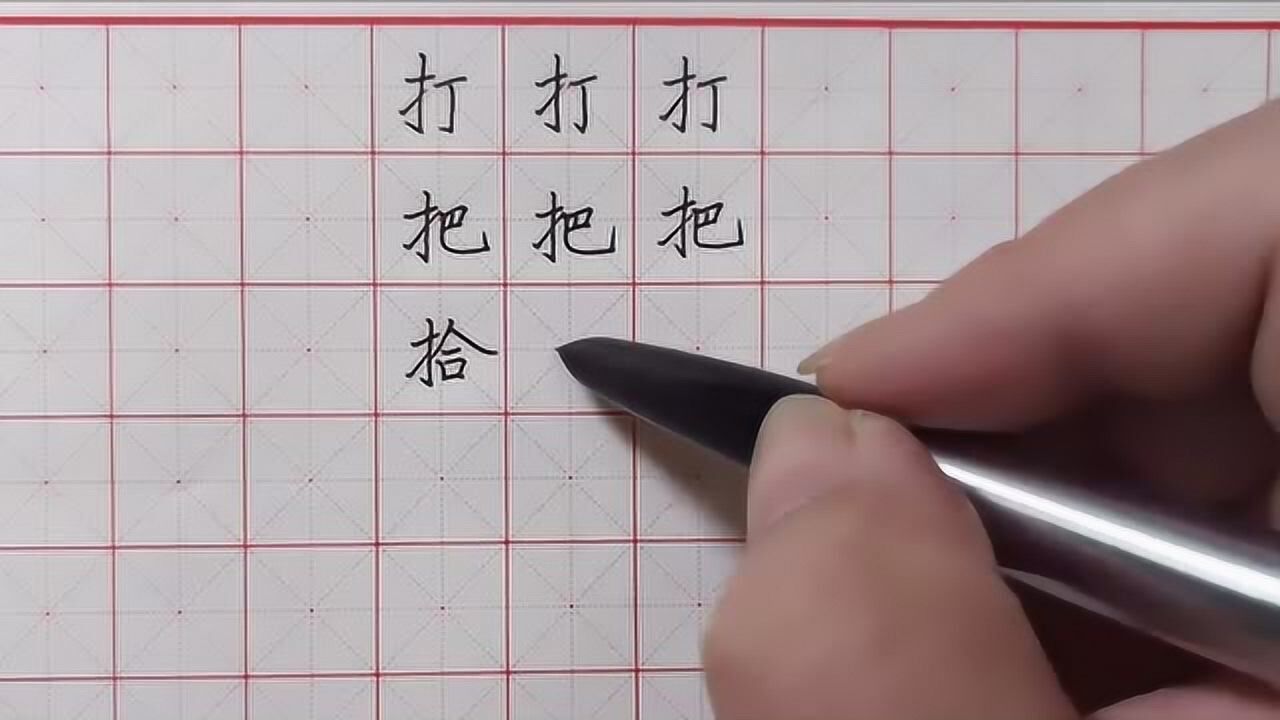 打 打 打
把 把 把
拾